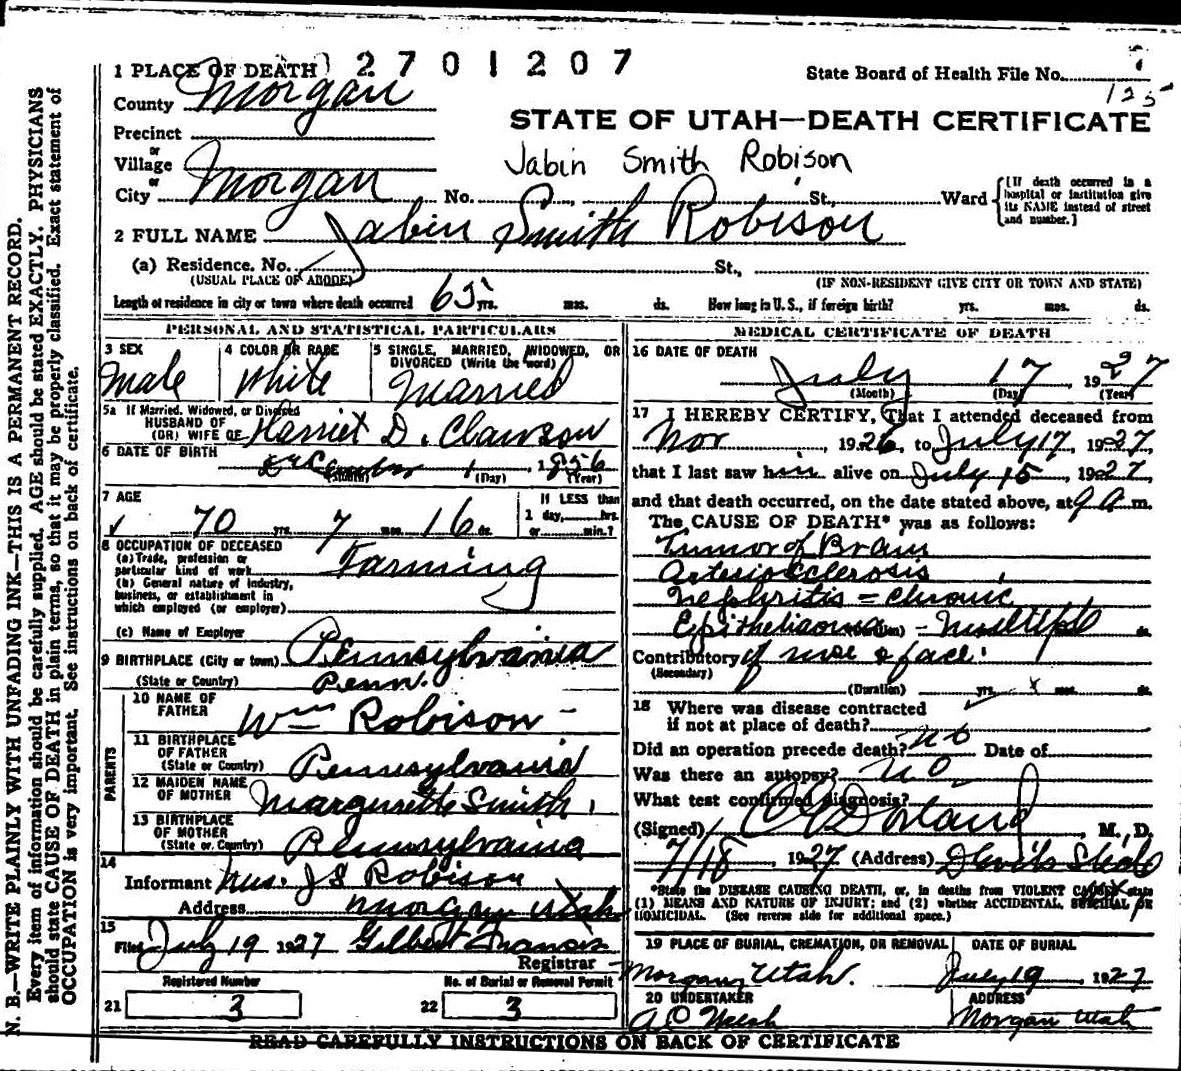 N. B.—WRITE PLAINLY WITH UNFADING INK—THIS IS A PERMANENT RECORD.
Every item of information should be carefully supplied. AGE should be stated EXACTLY. PHYSICIANS
should state CAUSE OF DEATH in plain terms, so that it may be properly classified. Exact statement of
OCCUPATION is very important. See instructions on back of certificate.
2701207
1 PLACE OF DEATH
State Board of Health File No.
125
County Morgan
STATE OF UTAH—DEATH CERTIFICATE
Precinct
or
Jabin Smith Robison
Village
or
City Morgan No. St., Ward
[If death occurred in a hospital or institution give its NAME instead of street and number.]
2 FULL NAME Jabin Smith Robison
(a) Residence. No. St.,
(USUAL PLACE OF ABODE) (IF NON-RESIDENT GIVE CITY OR TOWN AND STATE)
Length of residence in city or town where death occurred 65 yrs. mos. ds. How long in U. S., if foreign birth? yrs. mos. ds.
PERSONAL AND STATISTICAL PARTICULARS
3 SEX
Male
4 COLOR OR RACE
White
5 SINGLE, MARRIED, WIDOWED, OR
DIVORCED (Write the word)
Married
5a If Married, Widowed, or Divorced
HUSBAND OF
(OR) WIFE OF Harriet D. Clawson
6 DATE OF BIRTH
December 1, 1856
(Month) (Day) (Year)
7 AGE
70 yrs. 7 mos. 16 ds.
If LESS than
1 day, hrs.
or min.?
8 OCCUPATION OF DECEASED
(a) Trade, profession or
particular kind of work Farming
(b) General nature of industry,
business, or establishment in
which employed (or employer)
(c) Name of Employer
9 BIRTHPLACE (City or town) Pennsylvania
(State or Country) Penn.
PARENTS
10 NAME OF
FATHER Wm Robison
11 BIRTHPLACE
OF FATHER
(State or Country) Pennsylvania
12 MAIDEN NAME
OF MOTHER Margurette Smith
13 BIRTHPLACE
OF MOTHER
(State or Country) Pennsylvania
14
Informant Mrs. J S Robison
Address Morgan Utah
15
Filed July 19 1927 Gilbert Francis
Registrar
Registered Number
21 3
No. of Burial or Removal Permit
22 3
MEDICAL CERTIFICATE OF DEATH
16 DATE OF DEATH
July 17, 1927
(Month) (Day) (Year)
17 I HEREBY CERTIFY, That I attended deceased from
Nov, 1926, to July 17, 1927,
that I last saw him alive on July 15, 1927,
and that death occurred, on the date stated above, at 9 a m.
The CAUSE OF DEATH* was as follows:
Tumor of Brain
Arteriosclerosis
Nephritis = Chronic
Epithelioma (Duration) - Multiple ds.
Contributory of nose & face.
(Secondary)
(Duration) yrs. mos. ds.
18 Where was disease contracted
if not at place of death?
Did an operation precede death? no Date of
Was there an autopsy? no
What test confirmed diagnosis?
(Signed) M. D.
7/18, 1927 (Address) Devils Slide
*State the DISEASE CAUSING DEATH, or, in deaths from VIOLENT CAUSES, state
(1) MEANS AND NATURE OF INJURY; and (2) whether ACCIDENTAL, SUICIDAL OR
HOMICIDAL. (See reverse side for additional space.)
19 PLACE OF BURIAL, CREMATION, OR REMOVAL
Morgan, Utah.
DATE OF BURIAL
July 19, 1927
20 UNDERTAKER
Welsh
ADDRESS
Morgan Utah
READ CAREFULLY INSTRUCTIONS ON BACK OF CERTIFICATE